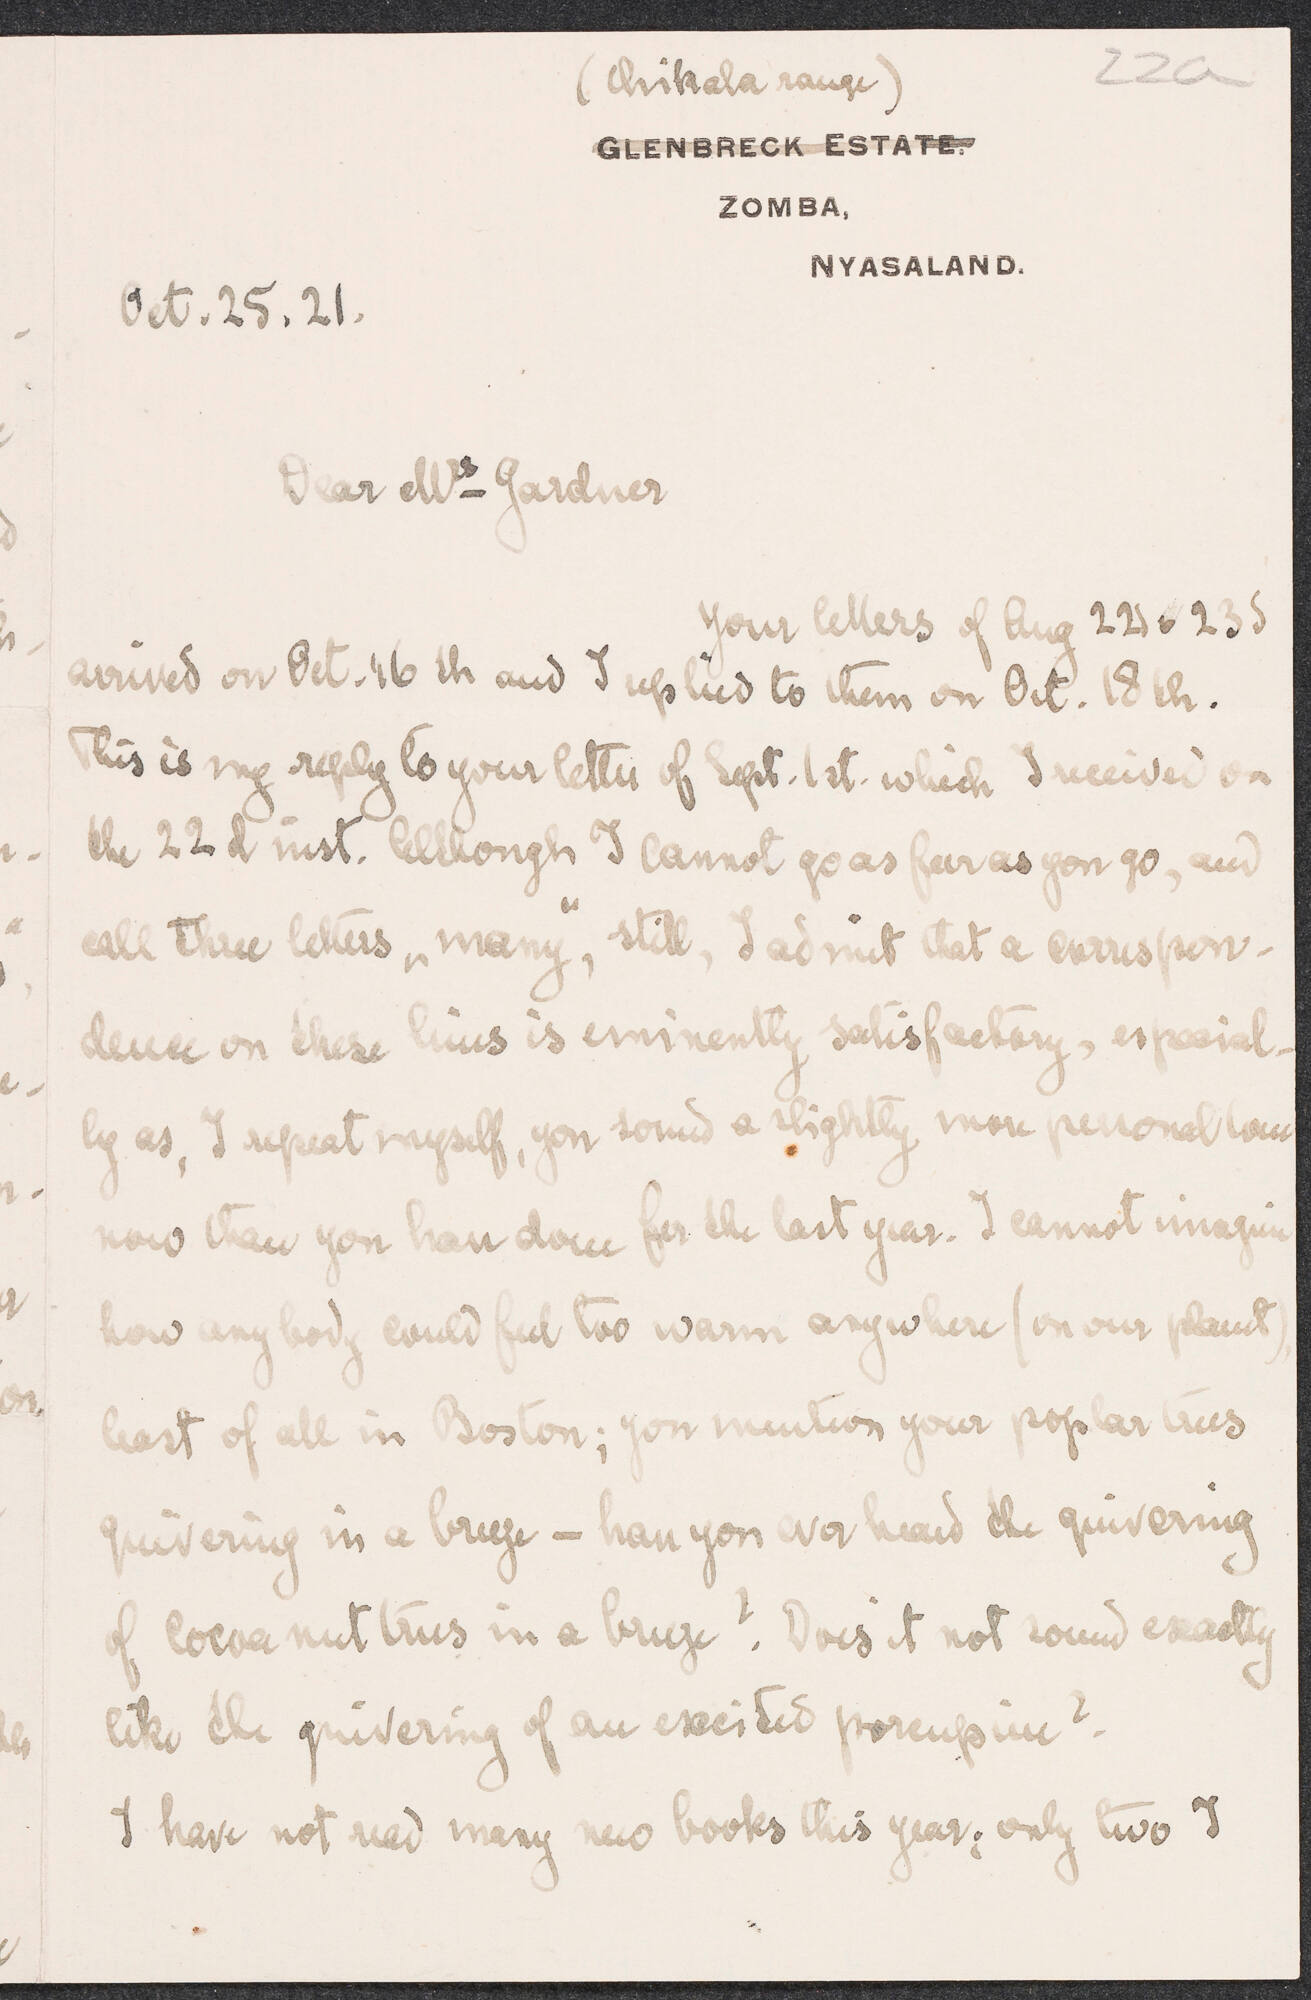 22a
(Chikala range)
GLENBRECK ESTATE.
ZOMBA,
NYASALAND.
Oct. 25. 21.
Dear Mrs Gardner
Your letters of Aug 22d & 23d
arrived on Oct. 16 th and I replied to them on Oct. 18 th.
This is my reply to your letter of Sept. 1st. which I received on
the 22d inst. Although I cannot go as far as you go, and
call three letters „many“, still, I admit that a correspon-
dence on these lines is eminently satisfactory, especial-
ly as, I repeat myself, you sound a slightly more personal tone
now than you have done for the last year. I cannot imagine
how anybody could feel too warm anywhere (on our planet),
least of all in Boston; you mention your poplar trees
quivering in a breeze – have you ever heard the quivering
of cocoanut trees in a breeze?. Does it not sound exactly
like the quivering of an excited porcupine?.
I have not read many new books this year; only two I